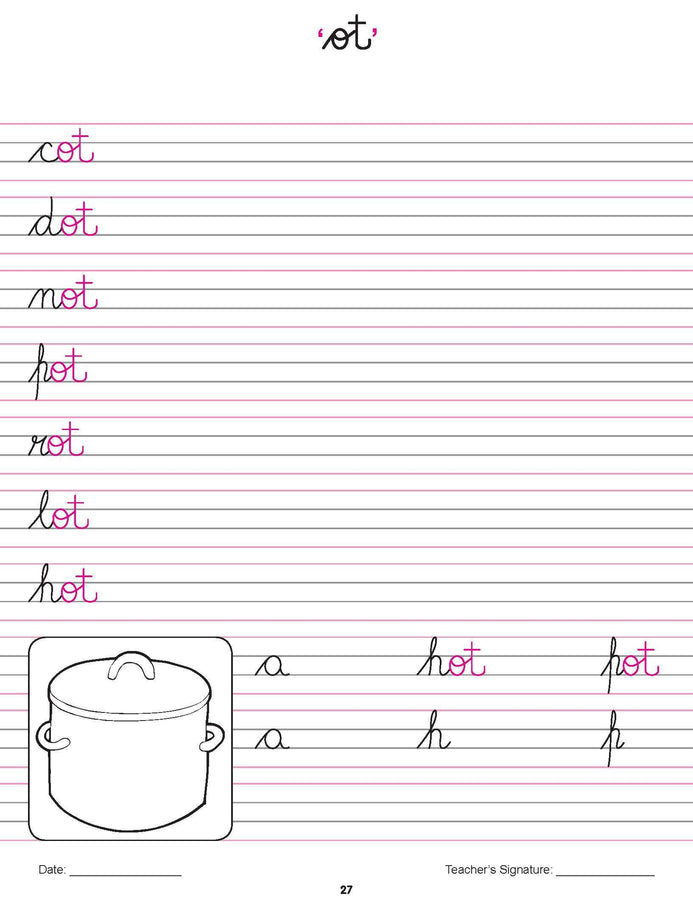 ‘ot’
cot
dot
not
pot
rot
lot
hot
a hot pot
a h p
Date: ________________ Teacher’s Signature: ______________
27